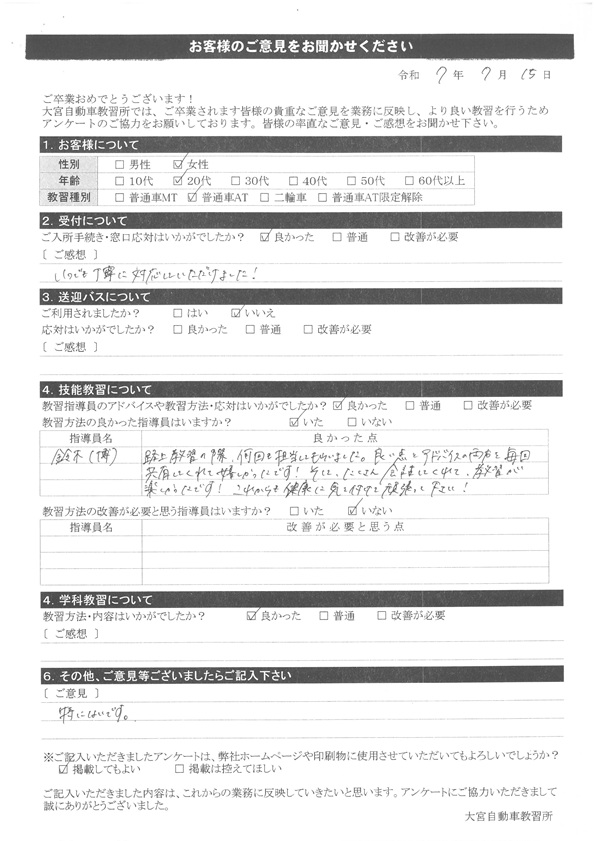 お客様のご意見をお聞かせください
令和 7 年 7 月 15 日
ご卒業おめでとうございます！
大宮自動車教習所では、ご卒業されます皆様の貴重なご意見を業務に反映し、より良い教習を行うため
アンケートのご協力をお願いしております。皆様の率直なご意見・ご感想をお聞かせ下さい。
1. お客様について
性別 □ 男性 ☑ 女性
年齢 □ 10代 ☑ 20代 □ 30代 □ 40代 □ 50代 □ 60代以上
教習種別 □ 普通車MT ☑ 普通車AT □ 二輪車 □ 普通車AT限定解除
2. 受付について
ご入所手続き・窓口応対はいかがでしたか？ ☑ 良かった □ 普通 □ 改善が必要
[ ご感想 ]
いつも丁寧に対応していただけました！
3. 送迎バスについて
ご利用されましたか？ □ はい ☑ いいえ
応対はいかがでしたか？ □ 良かった □ 普通 □ 改善が必要
[ ご感想 ]
4. 技能教習について
教習指導員のアドバイスや教習方法・応対はいかがでしたか？ ☑ 良かった □ 普通 □ 改善が必要
教習方法の良かった指導員はいますか？ ☑ いた □ いない
指導員名 良かった点
鈴木(博) 路上教習の際、何回も担当してもらいました。良い点とアドバイスの両方を毎回
共有してくれて嬉しかったです！そして、たくさん会話してくれて、教習が
楽しかったです！これからも健康に気を付けて頑張って下さい！
教習方法の改善が必要と思う指導員はいますか？ □ いた ☑ いない
指導員名 改善が必要と思う点
4. 学科教習について
教習方法・内容はいかがでしたか？ ☑ 良かった □ 普通 □ 改善が必要
[ ご感想 ]
6. その他、ご意見等ございましたらご記入下さい
[ ご意見 ]
特にないです。
※ご記入いただきましたアンケートは、弊社ホームページや印刷物に使用させていただいてもよろしいでしょうか？
☑ 掲載してもよい □ 掲載は控えてほしい
ご記入いただきました内容は、これからの業務に反映していきたいと思います。アンケートにご協力いただきまして
誠にありがとうございました。
大宮自動車教習所